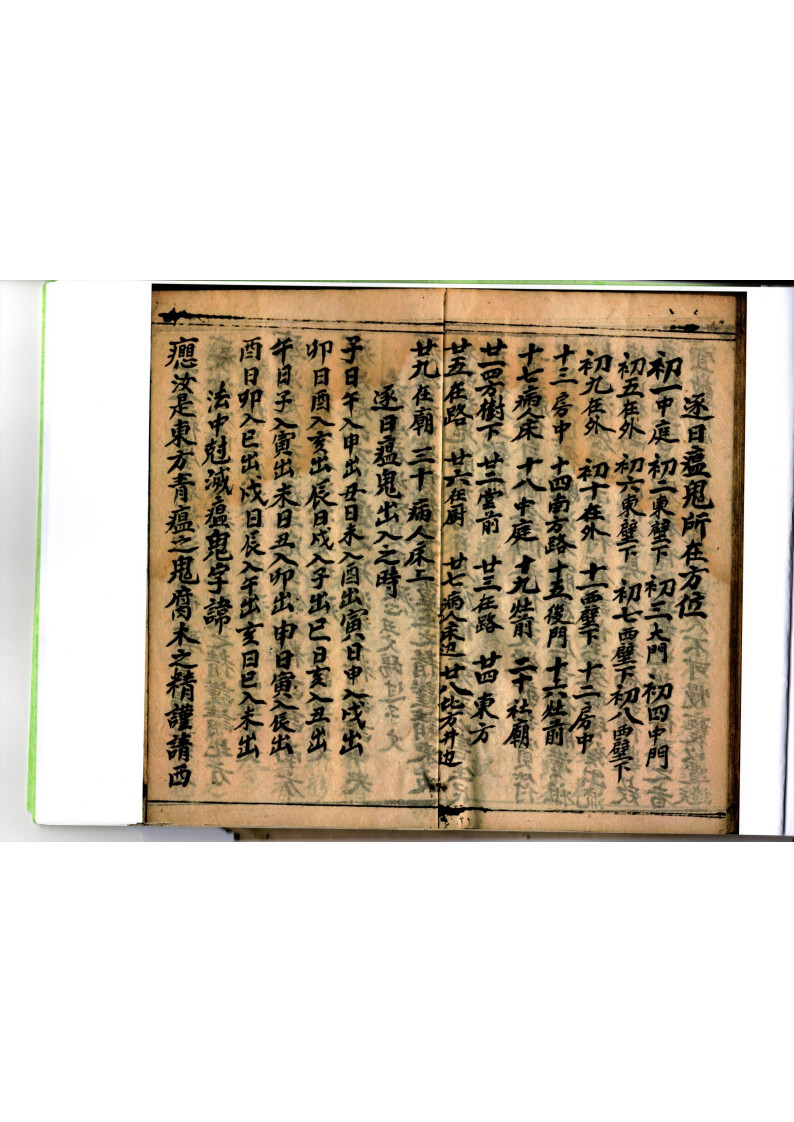 逐日瘟鬼所在方位
初一中庭 初二東壁下 初三大門 初四中門
初五在外 初六東壁下 初七西壁下 初八西壁下
初九在外 初十在外 十一西壁下 十二房中
十三房中 十四南方路 十五後門 十六灶前
十七病人床 十八中庭 十九灶前 二十社廟
廿一四方樹下 廿二堂前 廿三在路 廿四東方
廿五在路 廿六在厨 廿七病人床边 廿八北方井边
廿九在廟 三十病人床上
逐日瘟鬼出入之時
子日午入申出丑日未入酉出寅日申入戌出
卯日酉入亥出辰日戌入子出巳日亥入丑出
午日子入寅出未日丑入卯出申日寅入辰出
酉日卯入巳出戌日辰入午出亥日巳入未出
法中尅滅瘟鬼字諱
汝是東方青瘟之鬼腐木之精謹請西